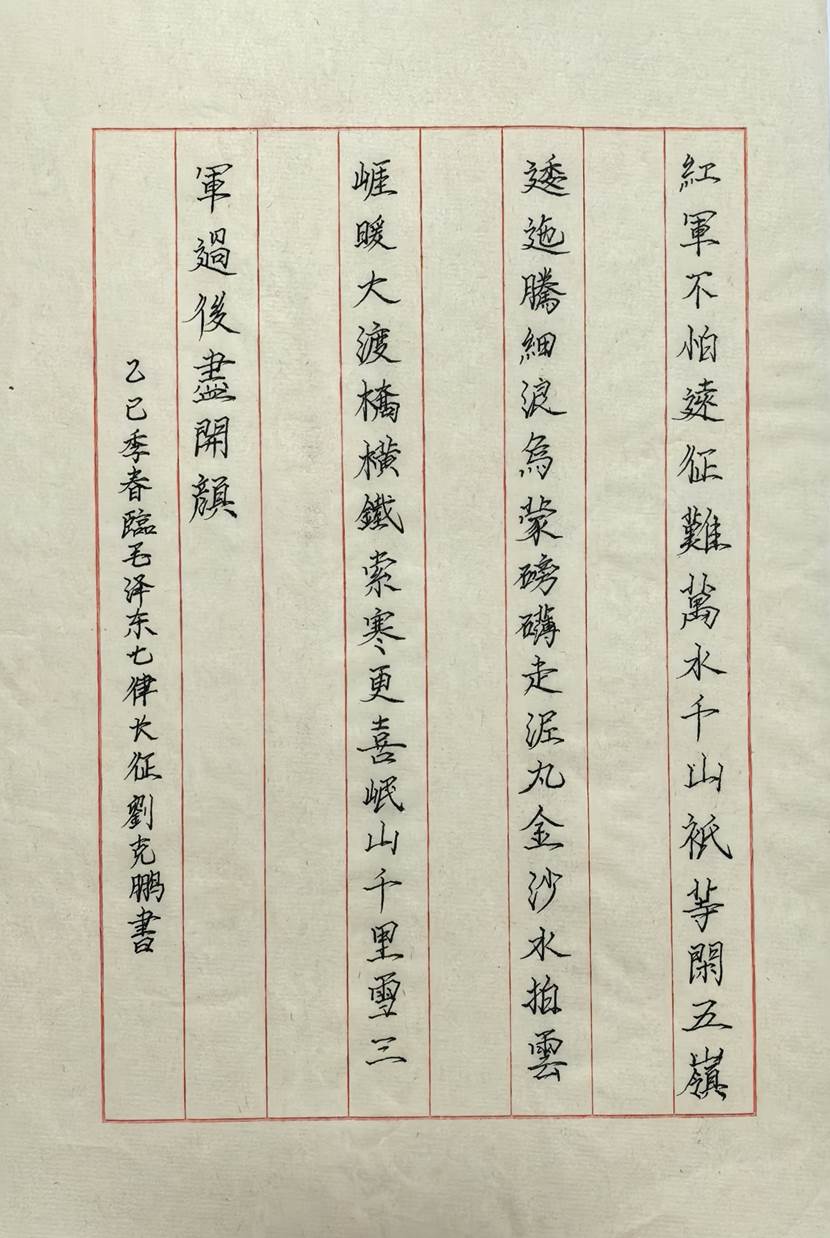 紅軍不怕遠征難萬水千山祇等閑五嶺
逶迤騰細浪烏蒙磅礴走泥丸金沙水拍雲
崕暖大渡橋橫鐵索寒更喜岷山千里雪三
軍過後盡開顔
乙巳季春臨毛泽东七律长征劉克鹏書